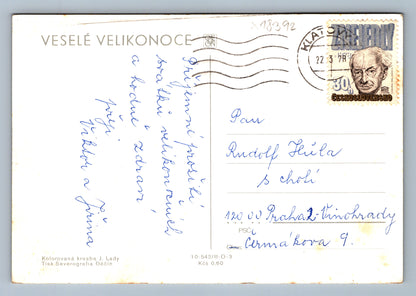 18392
VESELÉ VELIKONOCE
KLATOVY
22.3.78
ZD. NEJEDLÝ
30h
ČESKOSLOVENSKO
Příjemné prožití
svátků velikonočních
a hodně zdraví
přejí
Viktor a Jiřina
Pan
Rudolf Hůla
s chotí
12000 Praha 2-Vinohrady
PSČ
Čermákova 9.
Kolorovaná kresba J. Lady
Tisk Severografia Děčín
10-542/6-O-3
Kčs 0,60